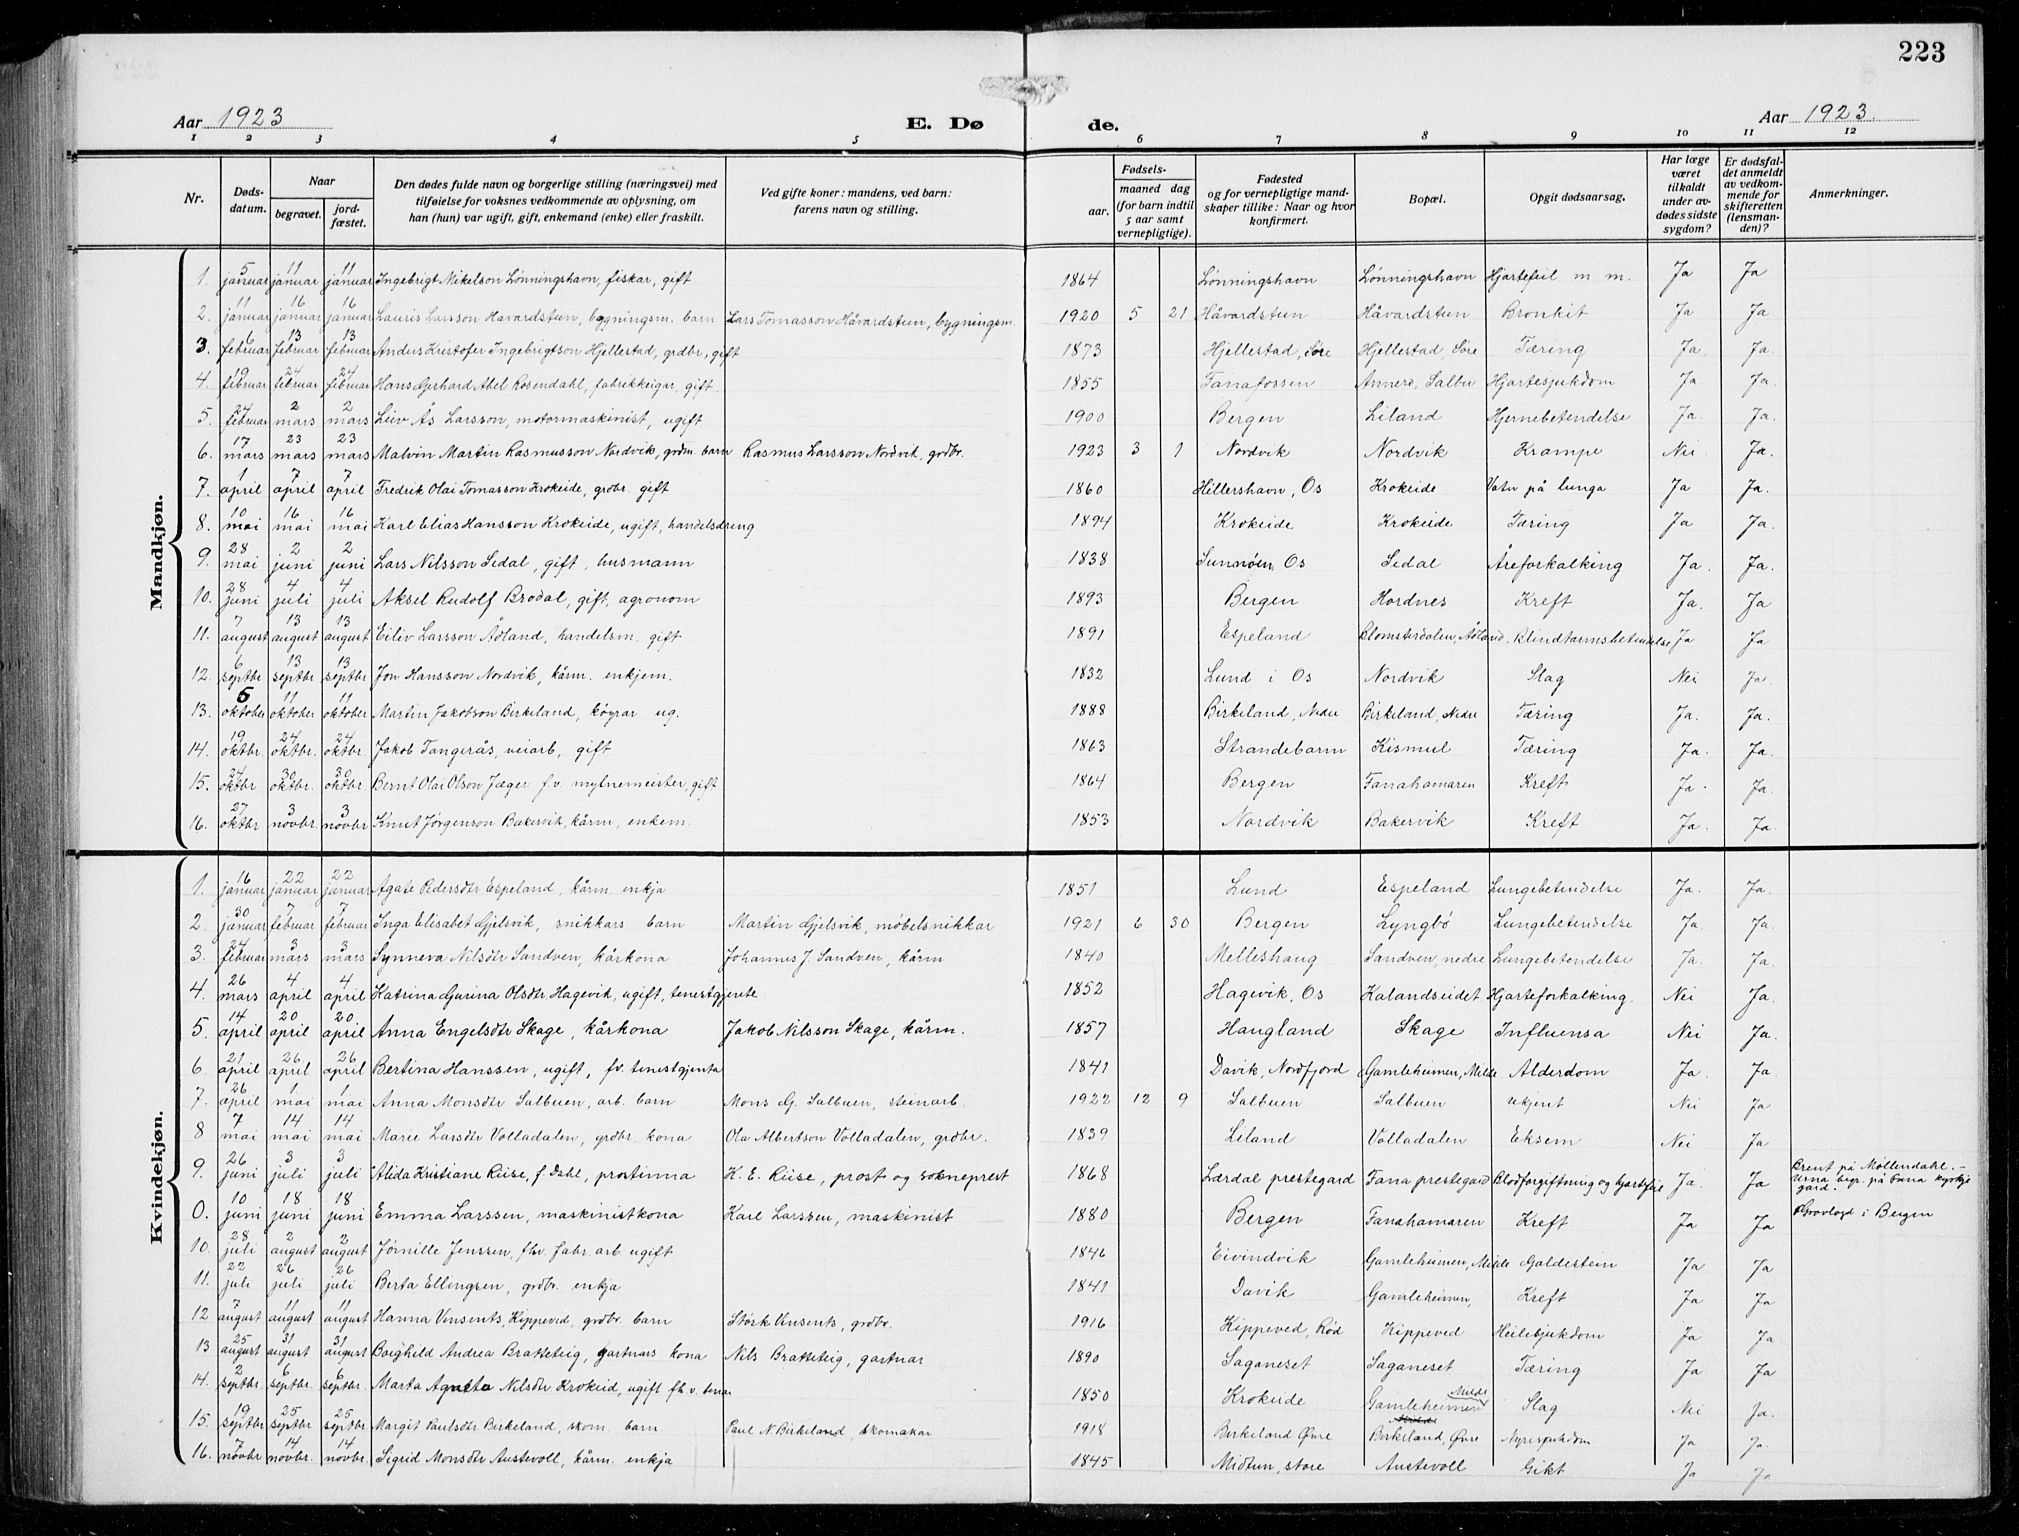 223
Aar 1923
E. Døde.
Aar 1923.
1 2 3 4 5 6 7 8 9 10 11 12
Nr.
Døds-datum.
Naar
begravet.
jord-fæstet.
Den dødes fulde navn og borgerlige stilling (næringsvei) med tilføielse for voksnes vedkommende av oplysning, om han (hun) var ugift, gift, enkemand (enke) eller fraskilt.
Ved gifte koner: mandens, ved barn: farens navn og stilling.
Fødsels-
aar.
maaned dag
(for barn indtil 5 aar samt vernepligtige).
Fødested og for vernepligtige mandskaper tillike: Naar og hvor konfirmert.
Bopæl.
Opgit dødsaarsag.
Har læge været tilkaldt under avdødes sidste sygdom?
Er dødsfaldet anmeldt av vedkommende for skifteretten (lensmanden)?
Anmerkninger.
Mandkjøn.
1. 5 januar 11 januar 11 januar Ingebrigt Nikelson Lønningshavn, fiskar, gift 1864 Lønningshavn Lønningshavn Hjartefeil m m. Ja Ja
2. 11 januar 16 januar 16 januar Lauris Larsson Håvardstun, bygningsm. barn Lars Tomasson Håvardstun, bygningsm. 1920 5 21 Håvardstun Håvardstun Bronkit Ja Ja
3. 6 februar 13 februar 13 februar Anders Kristofer Ingebrigtson Hjellestad, grdbr, gift 1873 Hjellestad, Søre Hjellestad, Søre Tæring Ja. Ja.
4. 19 februar 24 februar 24 februar Hans Gerhard Abel Rosendahl, fabrikkeigar, gift. 1855 Fanafossen Annerø, Salbu Hjartesjukdom Ja Ja.
5. 24 februar 2 mars 2 mars Leiv Ås Larsson, motormaskinist, ugift 1900 Bergen Liland Hjernebetendelse Ja. Ja.
6. 17 mars 23 mars 23 mars Malvin Martin Rasmusson Nordvik, grdm. barn Rasmus Larsson Nordvik, grdbr. 1923 3 1 Nordvik Nordvik Krampe Nei Ja.
7. 1 april 7 april 7 april Fredrik Olai Tomasson Krokeide, grdbr. gift 1860 Hillershavn, Os Krokeide Vatn på lunga Ja Ja.
8. 10 mai 16 mai 16 mai Karl Elias Hansson Krokeide, ugift, handelsdreng 1894 Krokeide Krokeide Tæring Ja Ja.
9. 28 mai 2 juni 2 juni Lars Nilsson Sedal, gift, husmann 1838 Sunnøen, Os Sedal Åreforkalking Ja. Ja.
10. 28 juni 4 juli 4 juli Aksel Rudolf Brodal, gift, agronom 1893 Bergen Hordnes Kreft Ja. Ja
11. 7 august 13 august 13 august Eiliv Larsson Ådland, handelsm. gift 1891 Espeland Blomsterdalen, Ådland. Blindtarmsbetendelse Ja Ja
12. 6 septbr 13 septbr 13 septbr Jon Hansson Nordvik, kårm. enkjem. 1832 Lund i Os Nordvik Slag Nei Ja.
13. 5 oktober 11 oktober 11 oktober Martin Jakobson Birkeland, køyrar ug. 1888 Birkeland, Nedre Birkeland, Nedre Tæring Ja. Ja.
14. 19 oktbr. 24 oktbr. 24 oktbr. Jakob Tangerås, veiarb, gift 1863 Strandebarm Kismul Tæring Ja. Ja.
15. 24 oktbr 30 oktbr. 30 oktbr. Bernt Olai Olson Jæger f.v. mylnemeister, gift 1864 Bergen Fanahamaren Kreft Ja. Ja.
16. 27 oktbr 3 novbr. 3 novbr Knut Jørgenson Bakervik, kårm, enkem. 1853 Nordvik Bakervik Kreft Ja. Ja.
Kvindekjøn.
1. 16 januar 22 januar 22 januar Agate Pedersdtr Espeland, kårm. enkja 1851 Lund Espeland Lungebetendelse Ja. Ja.
2. 30 januar 7 februar 7 februar Inga Elisabet Gjelsvik, snikkars barn Martin Gjelsvik, møbelsnikkar 1921 6 30 Bergen Lyngbø Lungebetendelse Ja. Ja.
3. 24 februar 3 mars 3 mars Synneva Nilsdtr Sandven, kårkona Johannes J. Sandven, kårm 1840 Melleshaug Sandven, nedre Lungebetendelse Ja. Ja.
4. 26 mars 4 april 4 april Katrina Gurina Olsdtr. Hagevik, ugift, tenestgjente 1852 Hagevik, Os Kalandseidet Hjarteforkalking. Nei Ja.
5. 14 april 20 april 20 april Anna Engelsdtr Skage, kårkona Jakob Nilsson Skage, kårm. 1857 Haugland Skage Influensa Nei Ja.
6. 21 april 26 april 26 april Bertina Hanssen, ugift, fv. tenestgjenta 1841 Davik, Nordfjord Gamleheimen, Milde Alderdom Ja. Ja.
7. 26 april 1 mai 1 mai Anna Monsdtr Salbuen, arb. barn Mons G. Salbuen, steinarb. 1922 12 9 Salbuen Salbuen ukjent Nei Ja
8 7 mai 14 mai 14 mai Marie Larsdtr Volladalen, grdbr. kona Ola Albertson Volladalen, grdbr. 1839 Liland Volladalen Eksem Nei Ja
9. 26 juni 3 juli 3 juli Alida Kristiane Riise, f. Dahl, prostinna K. E. Riise, prost og sokneprest 1868 Lærdal prestegard Fana prestegard Blodforgiftning og hjartefeil Ja. Ja Brent på Møllendahl. – Urna begr. på Fana kyrkjegard.
0. 10 juni 18 juni 18 juni Emma Larssen, maskinistkona Karl Larssen, maskinist 1880 Bergen Fanahamaren Kreft Ja Ja Gravlagd i Bergen
10. 28 juli 2 august 2 august Jørnille Jenssen, fhv. fabr. arb. ugift 1846 Eivindvik Gamleheimen, Milde Galdestein Ja Ja
11. 22 juli 26 juli 26 juli Berta Ellingsen, grdbr. enkja 1841 Davik Gamleheimen, Kreft Ja Ja
12 7 august 11 august 11 august Hanna Vinsents, Kippeved, grdbr. barn Størk Vinsents, grdbr. 1916 Kippeved, Rød Kippeved Heilesjukdom Ja Ja.
13 25 august 31 august 31 august Borghild Andrea Bratteteig, gartnars kona Nils Bratteteig, gartnar 1890 Saganeset Saganeset Tæring Ja Ja
14. 2 septbr. 6 septbr. 6 septbr. Marta Agatta Nilsdtr Krokeid, ugift fh.v. tenar 1850 Krokeide Gamleheimen Milde Slag Nei Ja.
15. 19 septbr 25 septbr 25 septbr Margit Paulsdtr Birkeland, skom. barn Paul N. Birkeland, skomakar 1918 Birkeland Øvre Birkeland, Øvre Nyresjukdom Ja Ja.
16. 7 novbr 14 novbr. 14 novbr. Sigrid Monsdtr Austevoll, kårm. enkja 1845 Midtun, store Austevoll Gikt Ja Ja